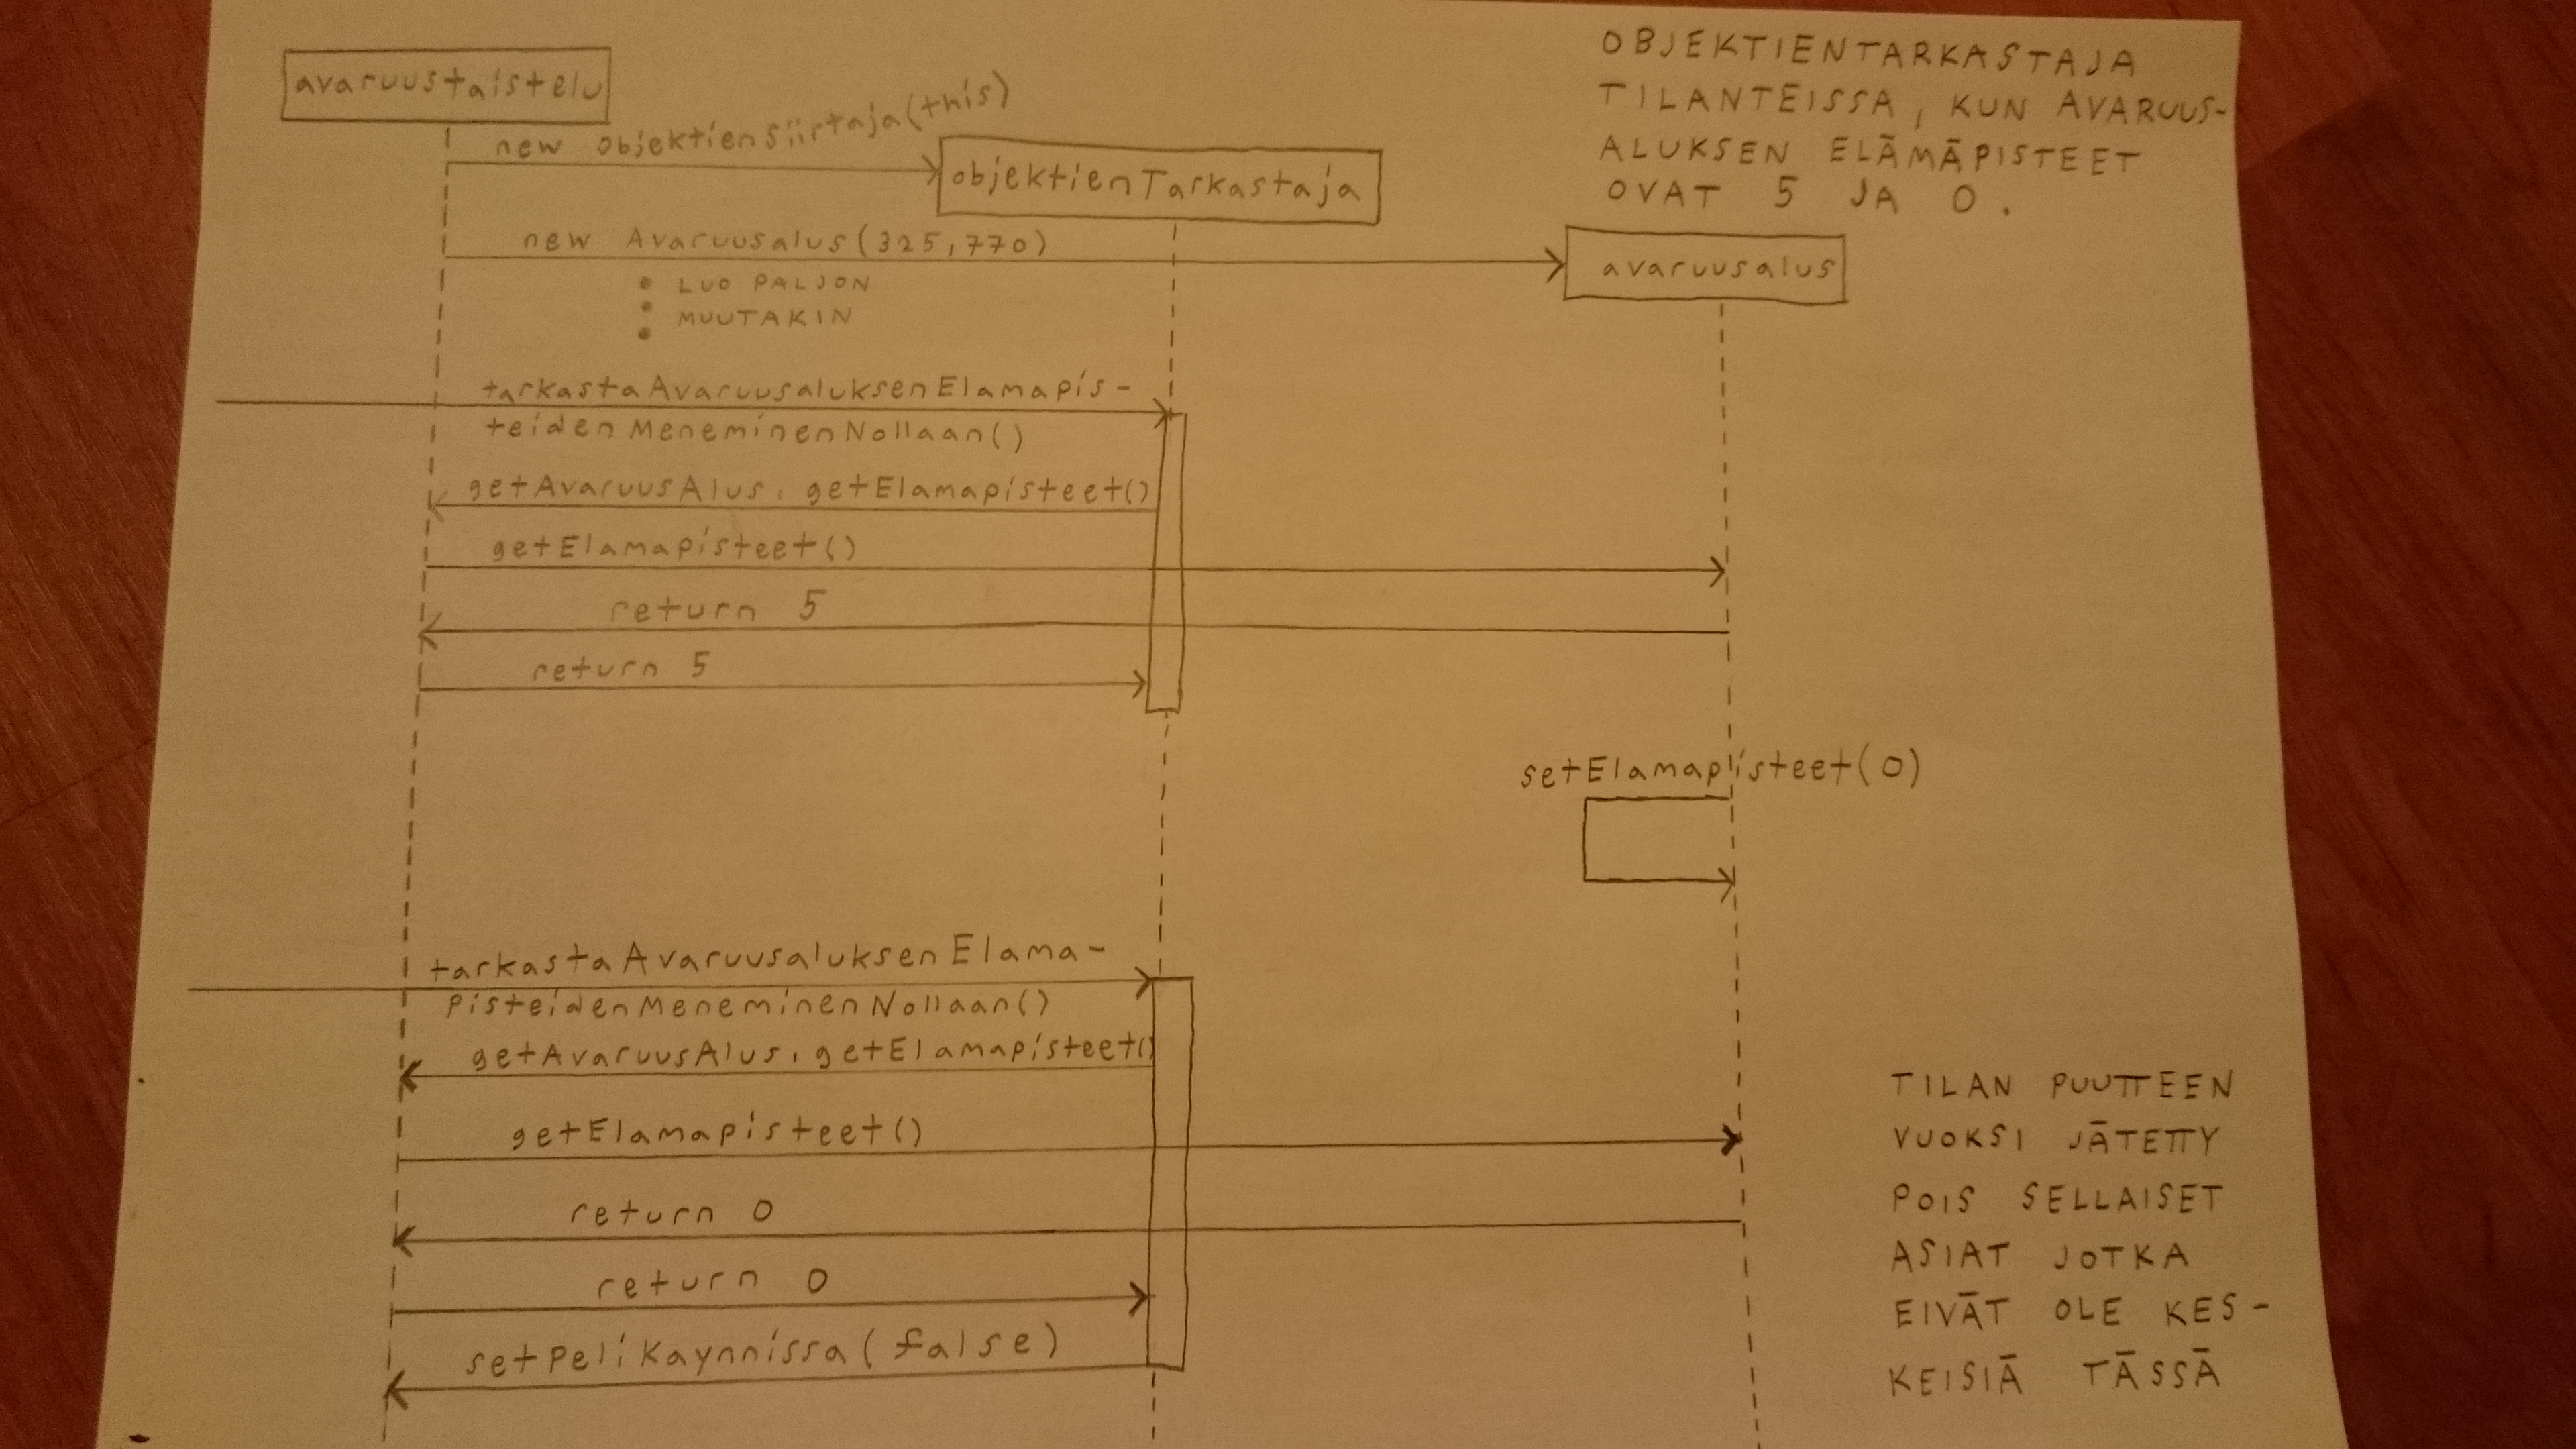 avaruustaistelu
new ObjektienSiirtaja(this)
objektienTarkastaja
OBJEKTIENTARKASTAJA
TILANTEISSA, KUN AVARUUS-
ALUKSEN ELÄMÄPISTEET
OVAT 5 JA 0.
new Avaruusalus(325,770)
avaruusalus
• LUO PALJON
• MUUTAKIN
•
tarkastaAvaruusaluksenElamapis-
teidenMeneminenNollaan()
getAvaruusAlus.getElamapisteet()
getElamapisteet()
return 5
return 5
setElamapisteet(0)
tarkastaAvaruusaluksenElama-
pisteidenMeneminenNollaan()
getAvaruusAlus.getElamapisteet()
getElamapisteet()
return 0
return 0
setPeliKaynnissa(false)
TILAN PUUTTEEN
VUOKSI JÄTETTY
POIS SELLAISET
ASIAT JOTKA
EIVÄT OLE KES-
KEISIÄ TÄSSÄ